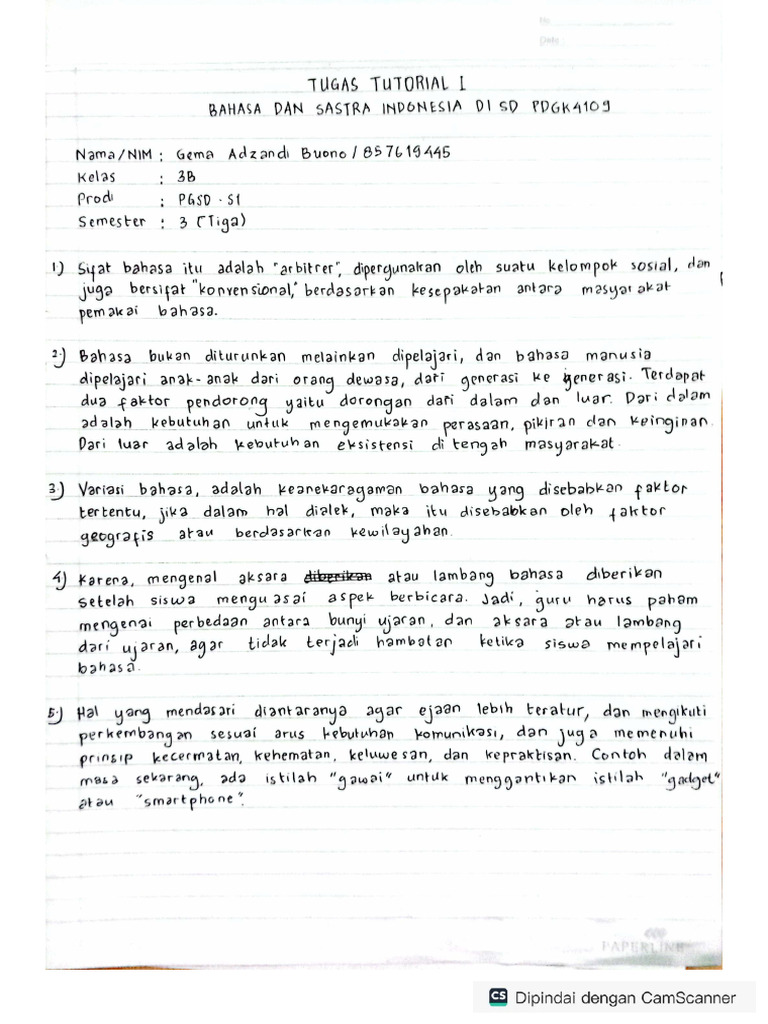 No
Date :
TUGAS TUTORIAL I
BAHASA DAN SASTRA INDONESIA DI SD PDGK4109
Nama/NIM : Gema Adzandi Buono / 857619445
Kelas : 3B
Prodi : PGSD - S1
Semester : 3 (Tiga)
1.) Sifat bahasa itu adalah "arbitrer", dipergunakan oleh suatu kelompok sosial, dan
juga bersifat "konvensional," berdasarkan kesepakatan antara masyarakat
pemakai bahasa.
2.) Bahasa bukan diturunkan melainkan dipelajari, dan bahasa manusia
dipelajari anak-anak dari orang dewasa, dari generasi ke generasi. Terdapat
dua faktor pendorong yaitu dorongan dari dalam dan luar. Dari dalam
adalah kebutuhan untuk mengemukakan perasaan, pikiran dan keinginan.
Dari luar adalah kebutuhan eksistensi di tengah masyarakat.
3.) Variasi bahasa, adalah keanekaragaman bahasa yang disebabkan faktor
tertentu, jika dalam hal dialek, maka itu disebabkan oleh faktor
geografis atau berdasarkan kewilayahan.
4.) Karena, mengenal aksara diberikan atau lambang bahasa diberikan
setelah siswa menguasai aspek berbicara. Jadi, guru harus paham
mengenai perbedaan antara bunyi ujaran, dan aksara atau lambang
dari ujaran, agar tidak terjadi hambatan ketika siswa mempelajari
bahasa.
5.) Hal yang mendasari diantaranya agar ejaan lebih teratur, dan mengikuti
perkembangan sesuai arus kebutuhan komunikasi, dan juga memenuhi
prinsip kecermatan, kehematan, keluwesan, dan kepraktisan. Contoh dalam
masa sekarang, ada istilah "gawai" untuk menggantikan istilah "gadget"
atau "smartphone".
PAPERLINE
CS Dipindai dengan CamScanner